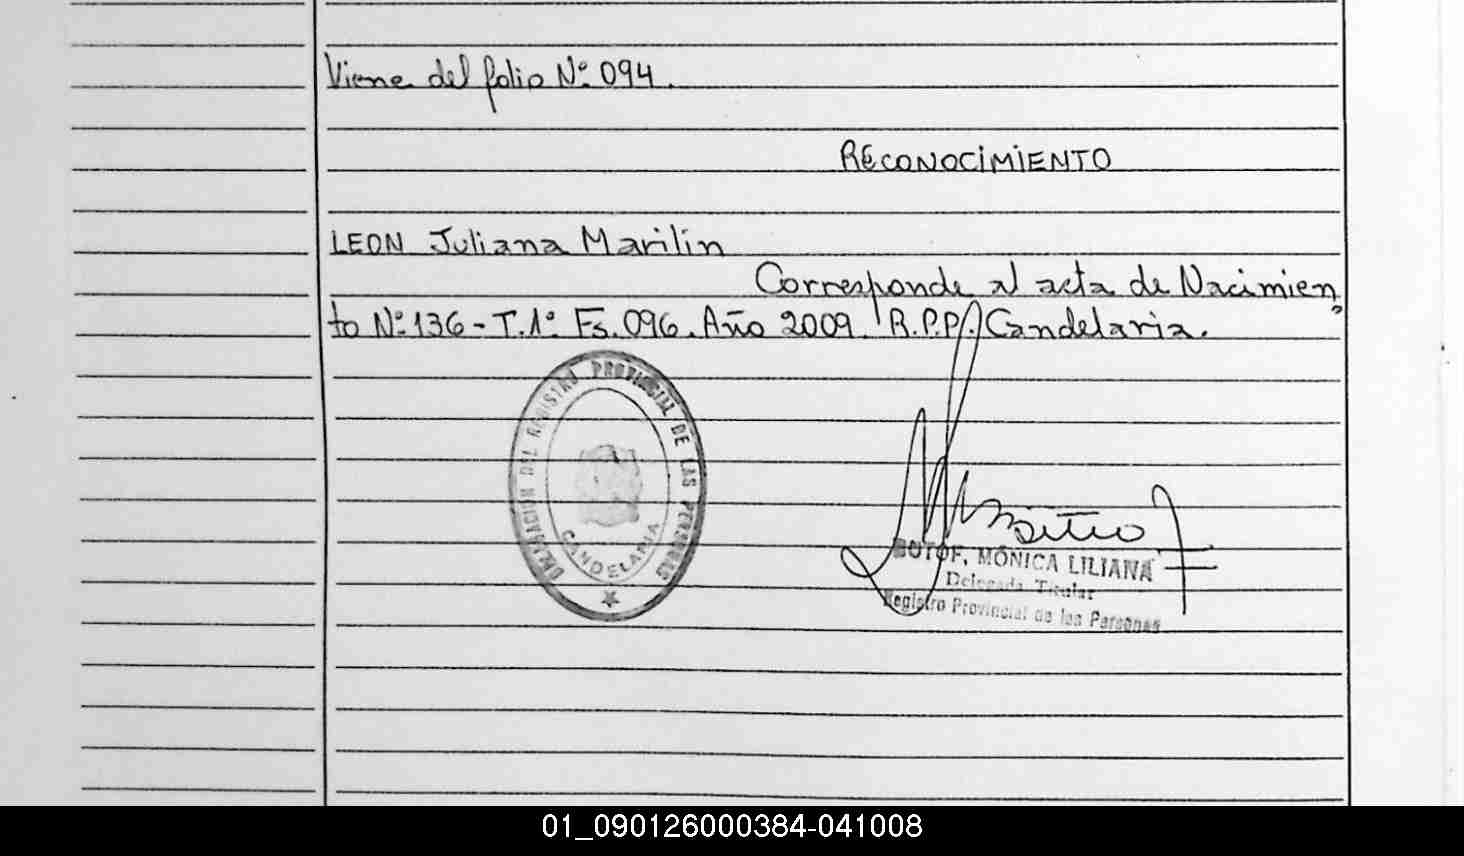 Viene del folio Nº 094.
RECONOCIMIENTO
LEON Juliana Marilin
Corresponde al acta de Nacimien
to Nº 136 - T. 1º Fs. 096. Año 2009. R.P.P. Candelaria.
DELEGACION DEL REGISTRO PROVINCIAL DE LAS PERSONAS
CANDELARIA
BOTOF, MÓNICA LILIANA
Delegada Titular
Registro Provincial de las Personas
01_090126000384-041008